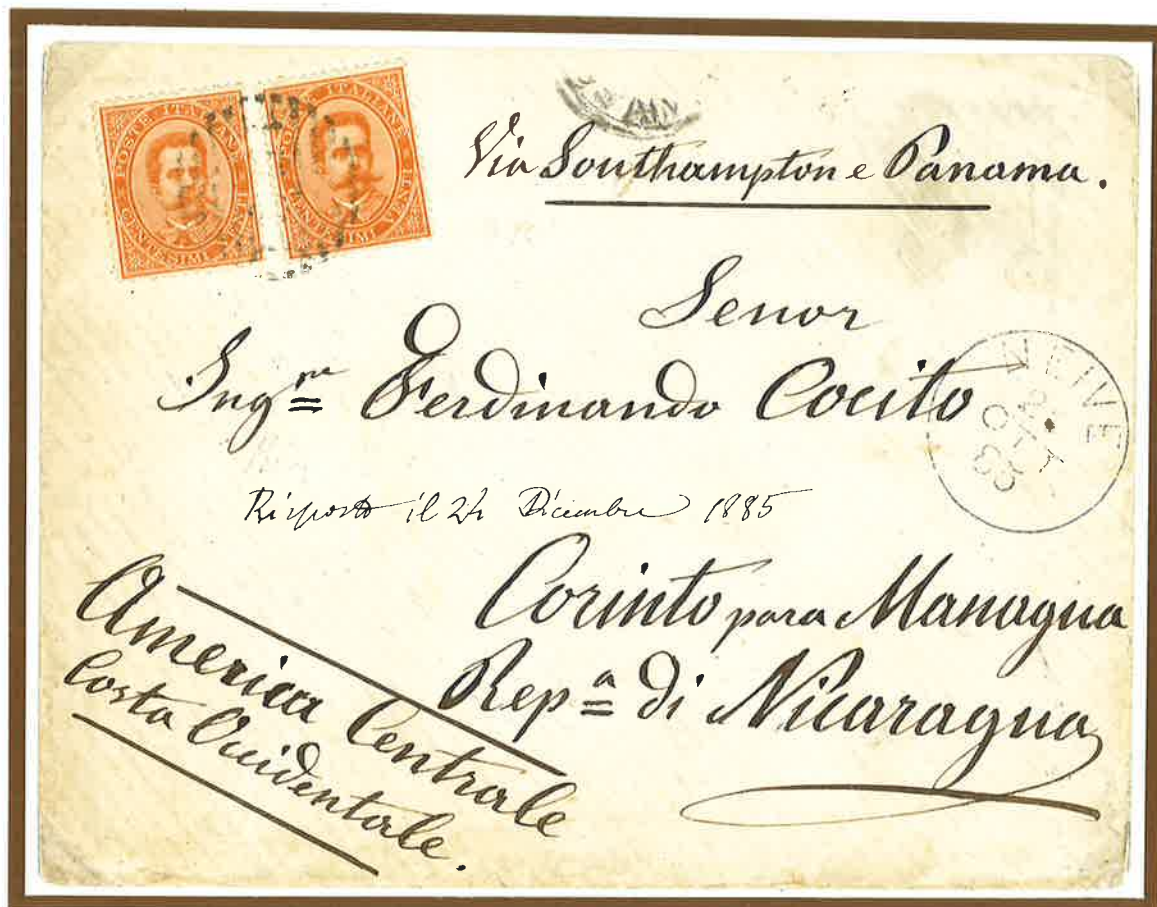 POSTE ITALIANE CENTESIMI VENTI
POSTE ITALIANE CENTESIMI VENTI
Via Southampton e Panama.
Senor
Ing.re Ferdinando Cocito
NEIVE
Risposto il 24 Dicembre 1885
Corinto para Managua
Rep.a di Nicaragua
America Centrale
Costa Occidentale.